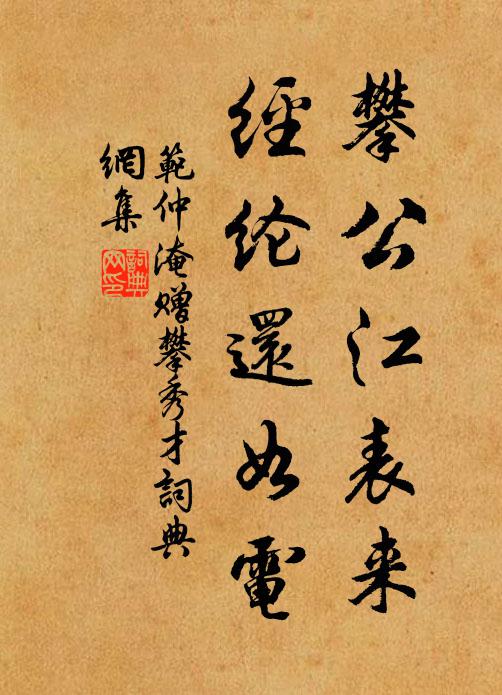 攀公江表来
經纶還如電
範仲淹赠攀秀才詞典
網集
詞典
网印